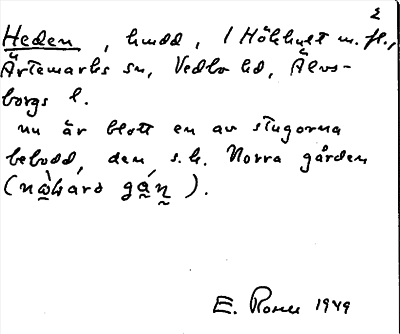 2
Heden, hmdd, 1 Hökhult m. fl.,
Ärtemarks sn, Vedbo hd, Älvs-
borgs l.
nu är blott en av stugorna
bebodd, den s.k. Norra gården
E. Rosell 1949